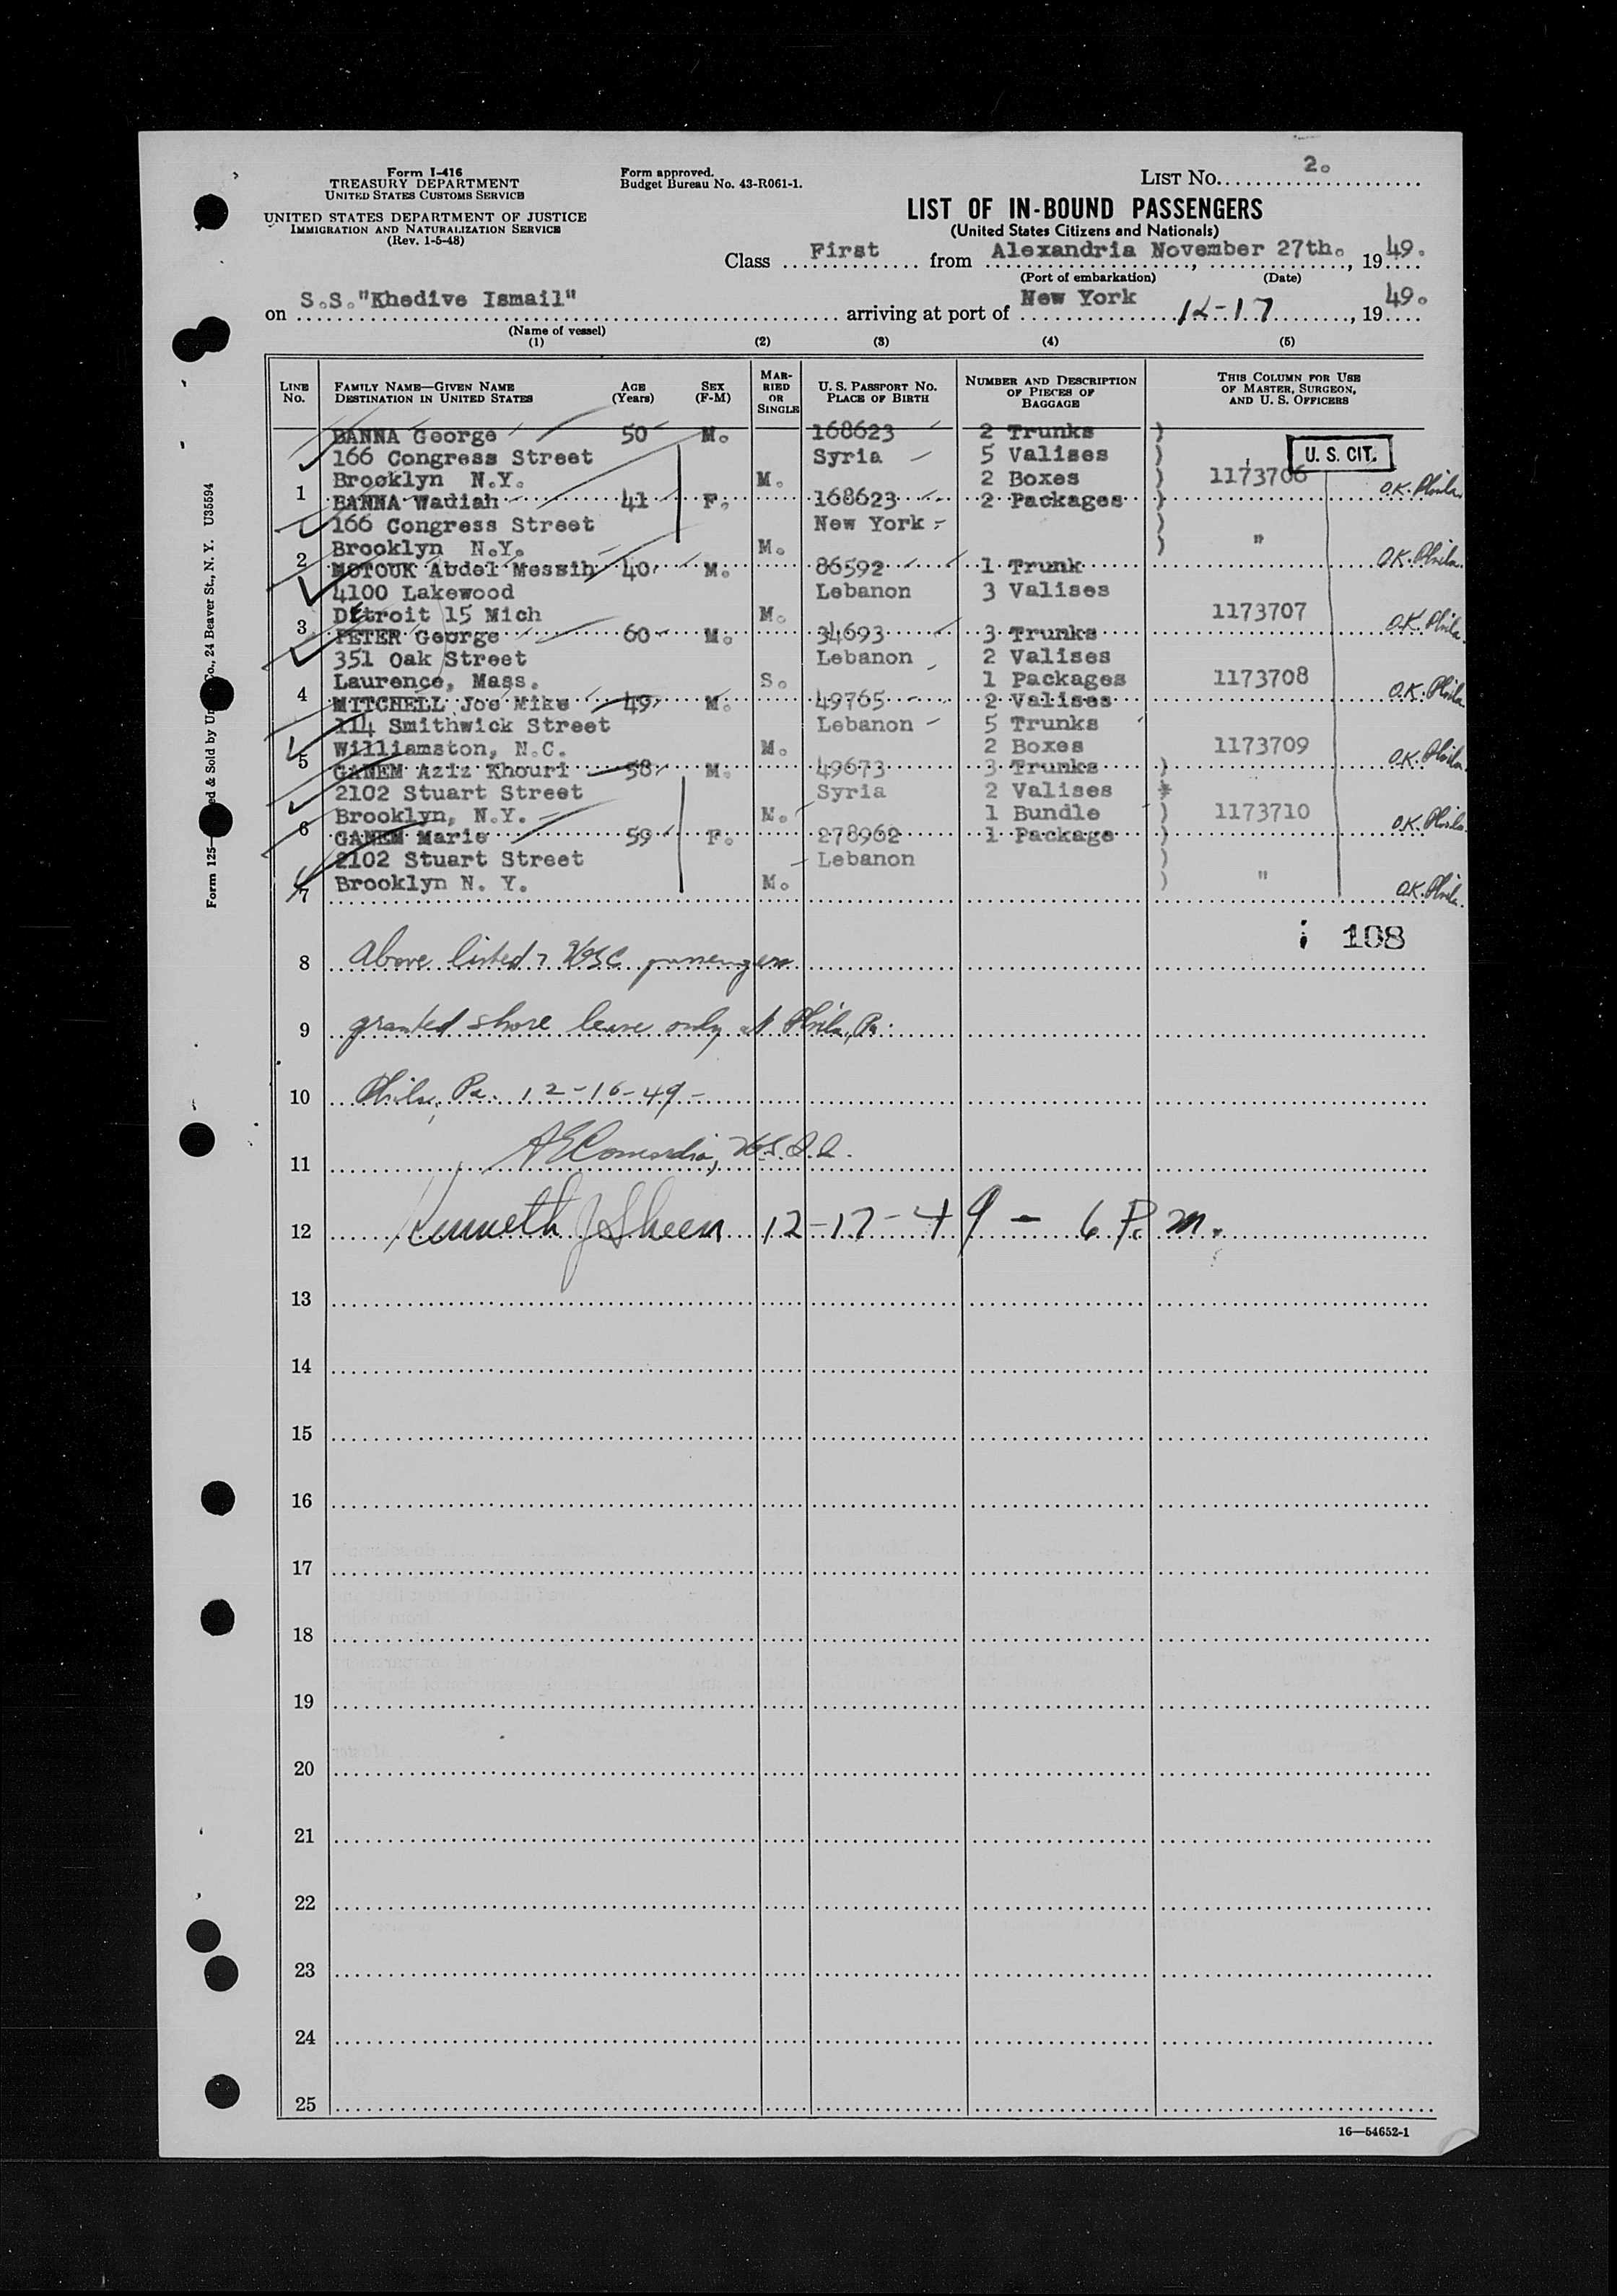 Form I-416
TREASURY DEPARTMENT
UNITED STATES CUSTOMS SERVICE
UNITED STATES DEPARTMENT OF JUSTICE
IMMIGRATION AND NATURALIZATION SERVICE
(Rev. 1-5-48)
Form approved.
Budget Bureau No. 43-R061-1.
LIST No. 2.
LIST OF IN-BOUND PASSENGERS
(United States Citizens and Nationals)
Class First from Alexandria November 27th., 1949.
(Port of embarkation) (Date)
on S.S."Khedive Ismail" arriving at port of New York 12-17, 1949.
(Name of vessel)
(1) (2) (3) (4) (5)
LINE No. FAMILY NAME—GIVEN NAME DESTINATION IN UNITED STATES AGE (Years) SEX (F-M) MARRIED OR SINGLE U. S. PASSPORT NO. PLACE OF BIRTH NUMBER AND DESCRIPTION OF PIECES OF BAGGAGE THIS COLUMN FOR USE OF MASTER, SURGEON, AND U. S. OFFICERS
BANNA George 50 M. 168623 2 Trunks )
166 Congress Street Syria 5 Valises ) U. S. CIT.
Brooklyn N.Y. M. 2 Boxes ) 1173706
1 BANNA Wadiah 41 F. 168623 2 Packages ) O.K. Phila.
166 Congress Street New York )
Brooklyn N.Y. M. ) "
2 MOTOUK Abdel Messih 40 M. 86592 1 Trunk O.K. Phila.
4100 Lakewood Lebanon 3 Valises
Detroit 15 Mich M. 1173707
3 PETER George 60 M. 34693 3 Trunks O.K. Phila.
351 Oak Street Lebanon 2 Valises
Laurence, Mass. S. 1 Packages 1173708
4 MITCHELL Joe Mike 49 M. 49765 2 Valises O.K. Phila
114 Smithwick Street Lebanon 5 Trunks
Williamston, N.C. M. 2 Boxes 1173709
5 GANEM Aziz Khouri 58 M. 49673 3 Trunks ) O.K. Phila.
2102 Stuart Street Syria 2 Valises )
Brooklyn, N.Y. M. 1 Bundle ) 1173710
6 GANEM Marie 59 F. 278962 1 Package ) O.K. Phila.
2102 Stuart Street Lebanon )
Brooklyn N. Y. M. ) "
7 O.K. Phila.
108
8 Above listed 7 USC passengers
9 granted shore leave only at Phila, Pa.
10 Phila, Pa. 12-16-49-
11
12 Kenneth J Sheen 12-17-49 - 6 P. m.
13
14
15
16
17
18
19
20
21
22
23
24
25
16—54652-1
Form 125— ed & Sold by Un Co., 24 Beaver St., N. Y. U35594